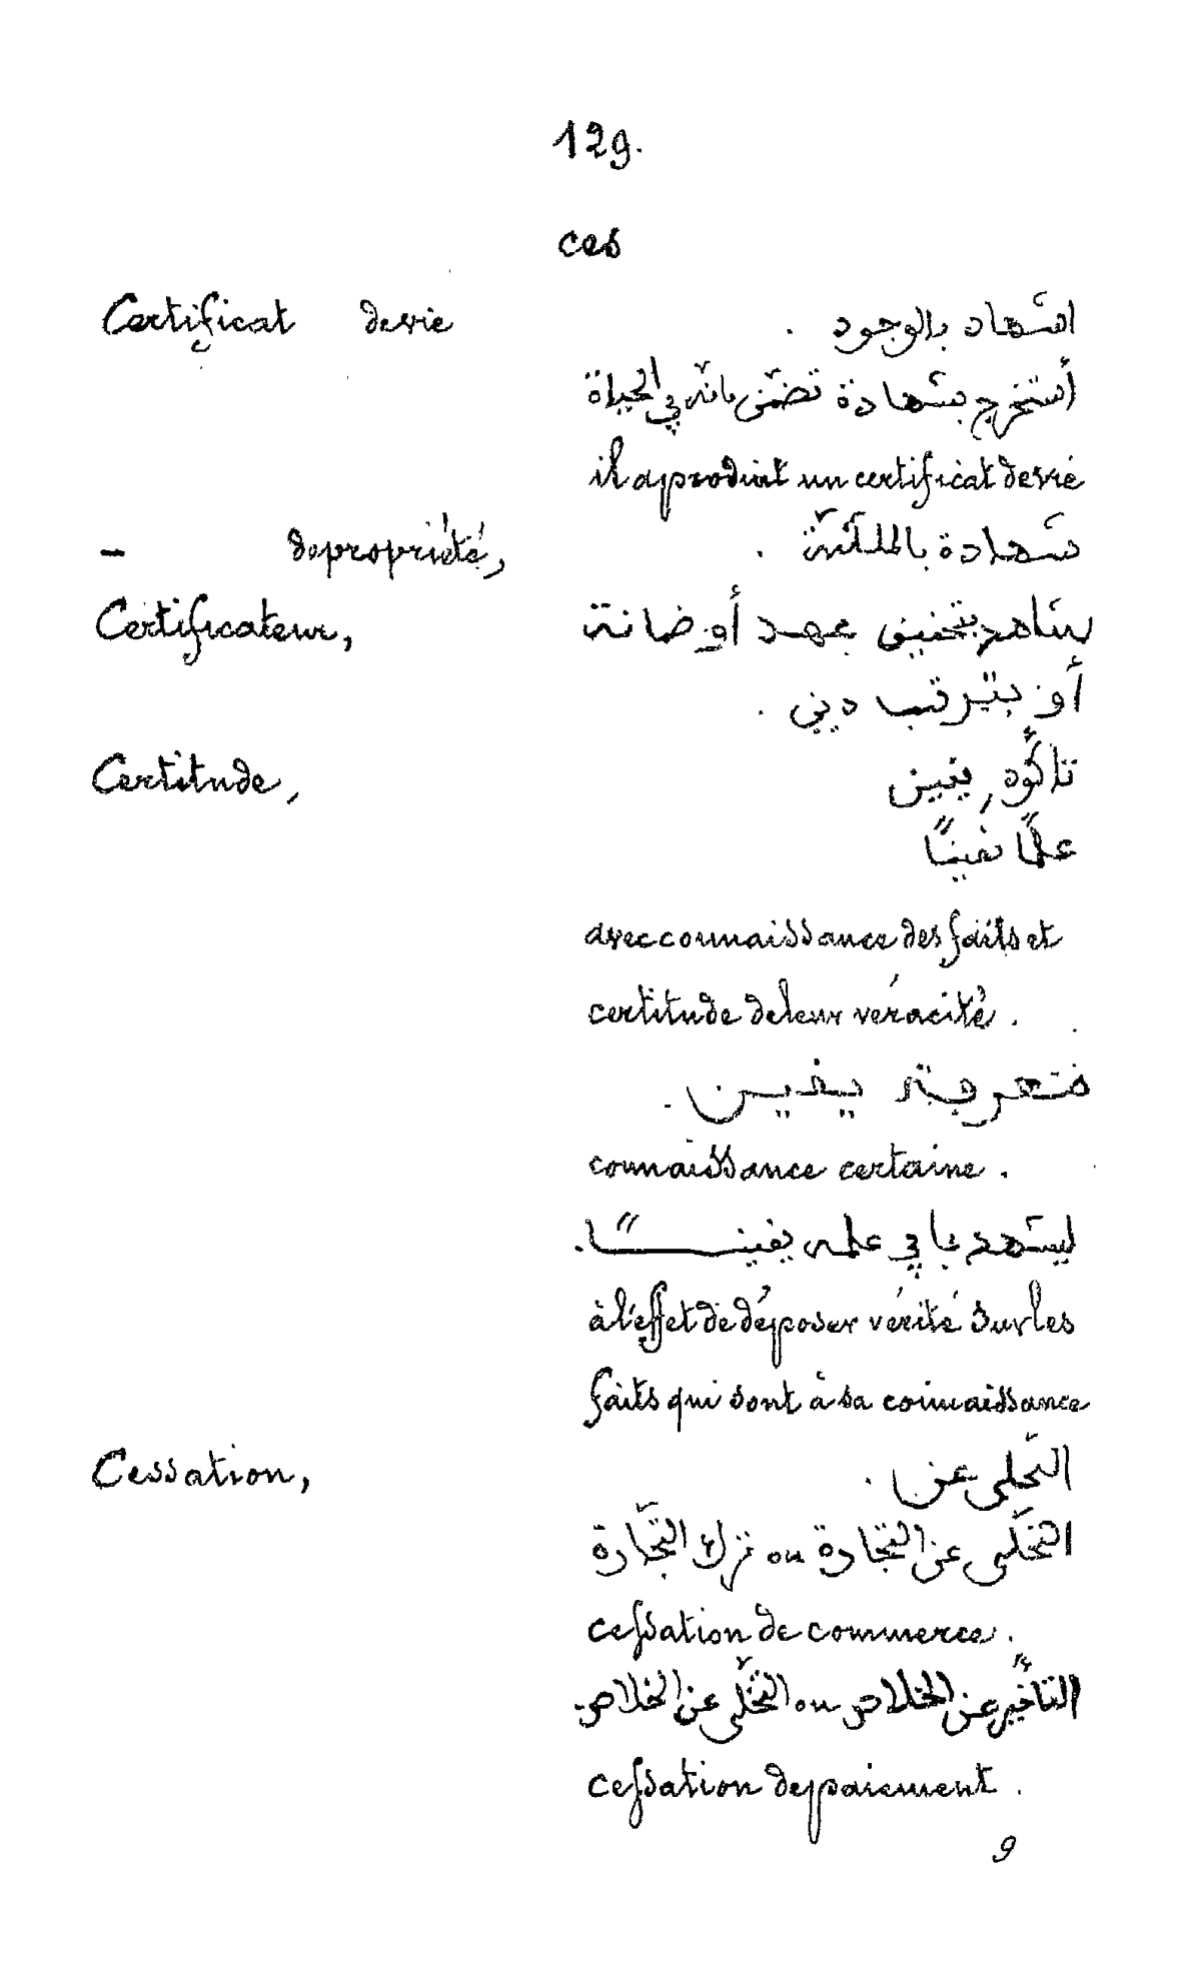 129.
ces
Certificat de vie
اشهاد بالوجود .
أستخرج بشهادة تضمّن بانّه في الحياة
il a produit un certificat de vie
— de propriété,
شهادة بالملكيّة .
Certificateur,
شاهد بتحقيق عهد أو ضمانة
أو بترتب دين .
Certitude,
تأكّد, يقين
علمًا يقينًا
avec connaissance des faits et
certitude de leur véracité .
معرفة يقين .
connaissance certaine .
ليشهد بما في علمه يقينــــًا.
à l'effet de déposer vérité sur les
faits qui sont à sa connaissance
Cessation,
التخلى عن .
التخلّى عن التجارة ou ترك التجارة
cessation de commerce .
التأخير عن الخلاص ou التخلّى عن الخلاص.
cessation de paiement .
9